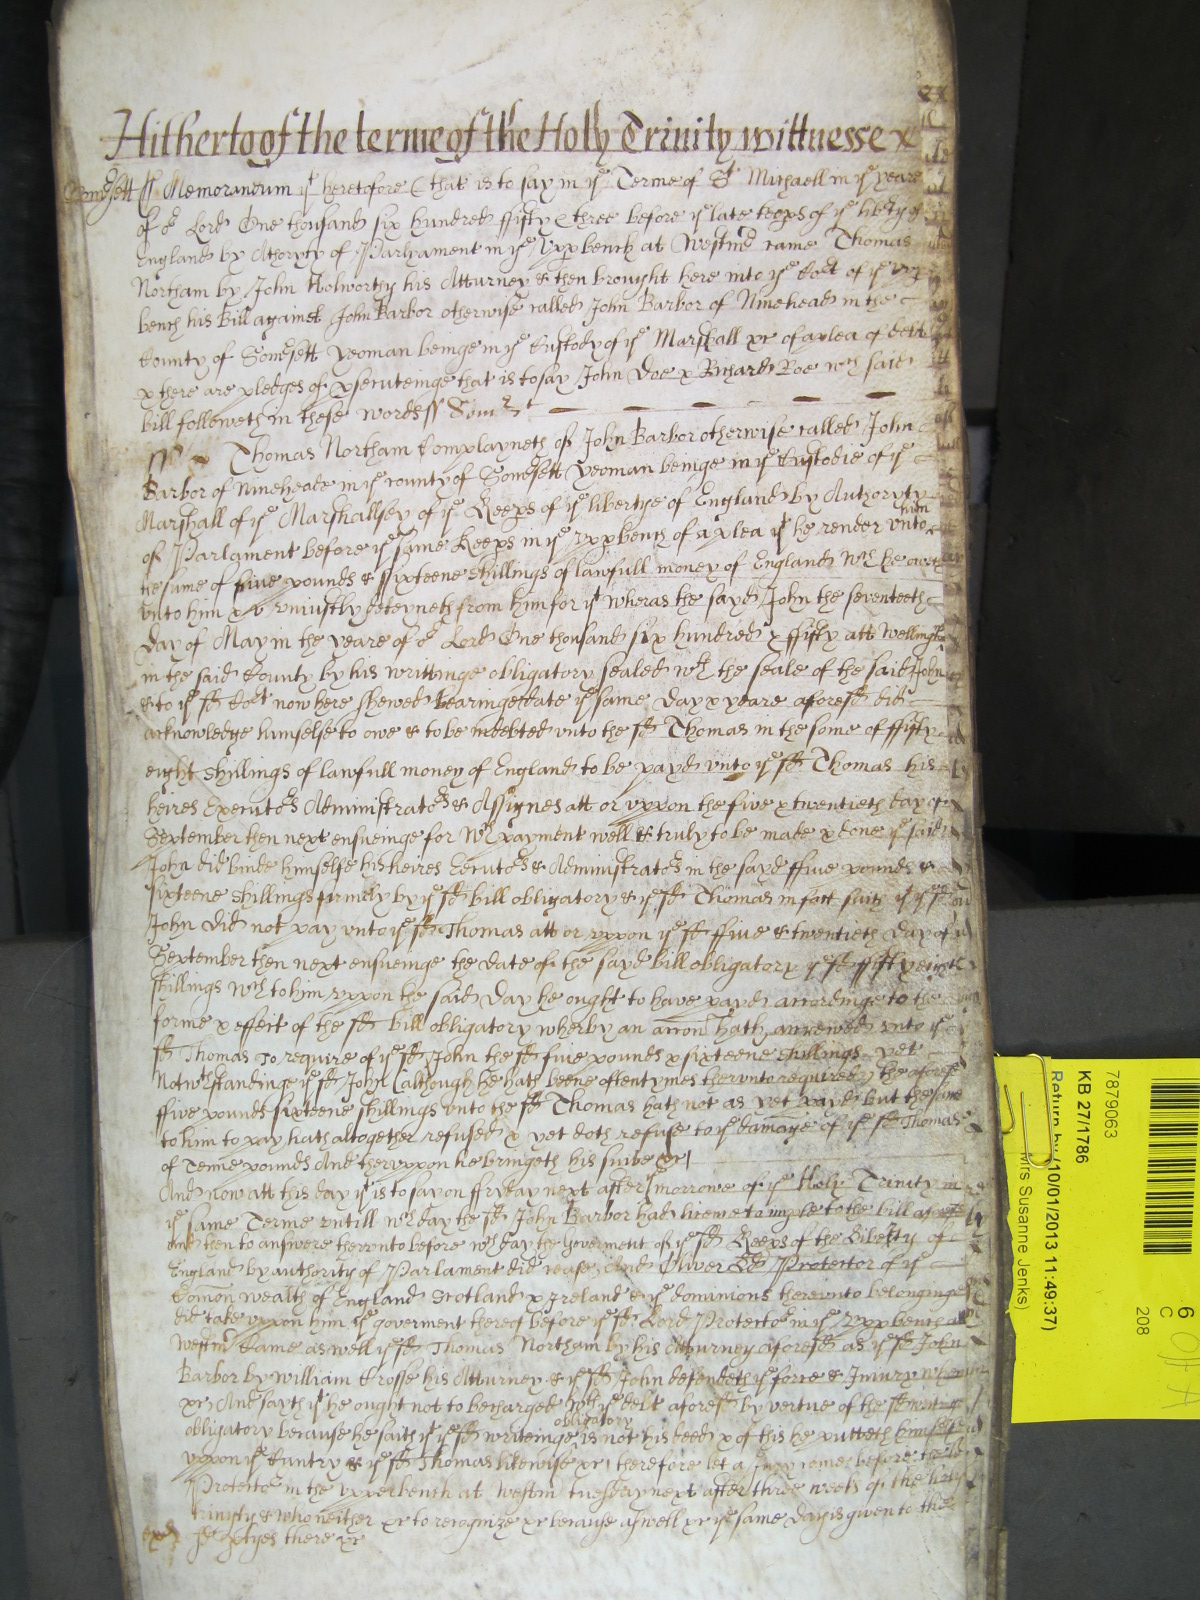 Hitherto of the terme of the Holy Trinity wittnesse x
Somersett ss Memorandum yt heretofore (that is to say in ye Terme of St Michaell in ye yeare
of or Lord One thousand six hundred ffifty & three before ye late keeps of ye liberty of
England by Athoryty of Parlyament in ye upp bench at Westmr came Thomas
Northam by John Holworthy his Atturney & then brought here into ye Cort of ye upp
bench his Bill against John Barbor otherwise called John Barbor of Ninehead in the
County of Somersett yeoman beinge in ye Custody of ye Marshall xc of a plea of debt
x there are pledges of psecuteinge that is to say John Doe x Richard Roe wch said
bill followeth in these words ss
ss Thomas Northam Complayneth of John Barbor otherwise called John
Barbor of Nineheade in ye county of Somersett yeoman beinge in ye Custodie of ye
Marshall of ye Marshallsey of ye Keeps of ye libertye of England by Authoryty
of Parlament before ye same Keeps in ye uppbench of a plea yt he render unto him
the same of five pounds & sixteene shillings of lawfull money of England wch he oweth
unto him xc uniustly deteyneth from him for yt wheras the sayd John the seventeeth
day of May in the yeare of or Lord One thousand six hundred x ffifty att Wellington
in the said County by his writtinge obligatory sealed wth the seale of the said John
& to ye sd Cort now here shewed bearinge date ye same day x yeare aforesd did
acknowledge himselfe to owe & to be indebted unto the sd Thomas in the some of ffifty
eight shillings of lawfull money of England to be payd unto ye sd Thomas his
heires Executors Administrators & Assignes att or uppon the five x twentieth day of
September then next ensueinge for wch payment well & truly to be made x done ye said
John did binde himselfe his heires Executors & Administrators in the sayd ffive pounds &
sixteene shillings firmely by ye sd bill obligatory & ye sd Thomas in fact saith yt ye sd
John did not pay unto ye sd Thomas att or uppon ye sd ffive & twentieth day of
September then next ensueinge the date of the sayd bill obligatory ye sd ffifty eight
shillings wch to him uppon the said day he ought to have payd accordinge to the
forme x effect of the sd bill obligatory wherby an accon hath accrewed unto ye
sd Thomas to require of ye sd John the sd five pounds x sixteene shillings yet
Notwthstandinge ye sd John (although he hath beene oftentymes therunto required) the aforesd
ffive pounds sixteene shillings unto the sd Thomas hath not as yet payd but the same
to him to pay hath altogether refused x yet doth refuse to ye damage of ye sd Thomas
of Tenne pounds And theruppon he bringeth his suite xc
And now att this day yt is to say on ffryday next after ye morrowe of ye Holy Trinity in
ye same Terme untill wch day the sd John Barbor had licence to imple to the bill aforesd
and then to answere therunto before wch day the Goverment of ye sd Keeps of the Liberty of
England by authority of Parlament did cease And Oliver Ld Protector of ye
Comon wealth of England Scotland x Ireland & ye dominions thereunto belonginge
did take uppon him ye goverment thereof before ye sd Lord Protector in ye uppbench att
Westmr Came as well ye sd Thomas Northam by his Atturney aforesd as ye sd John
Barbor by William Crosse his Atturney & ye sd John defendeth ye force & Iniury when
xc And sayth yt he ought not to be charged wth ye debt aforesd by vertue of the sd writinge
obligatory because he saith yt ye sd writeinge obligatory is not his deed x of this he putteth himselfe
uppon ye Cuntry & ye sd Thomas likewise xc therefore let a Jury come before the Ld
Protector in the upperbench at Westm tuesday next after three weeks of the holy
trinity & who neither xc to recognize xc because aswell xc ye same day is given to the
sd ptyes there xc
7879063
KB 27/1786
Return by (10/01/2013 11:49:37)
Mrs Susanne Jenks)
6
C
208